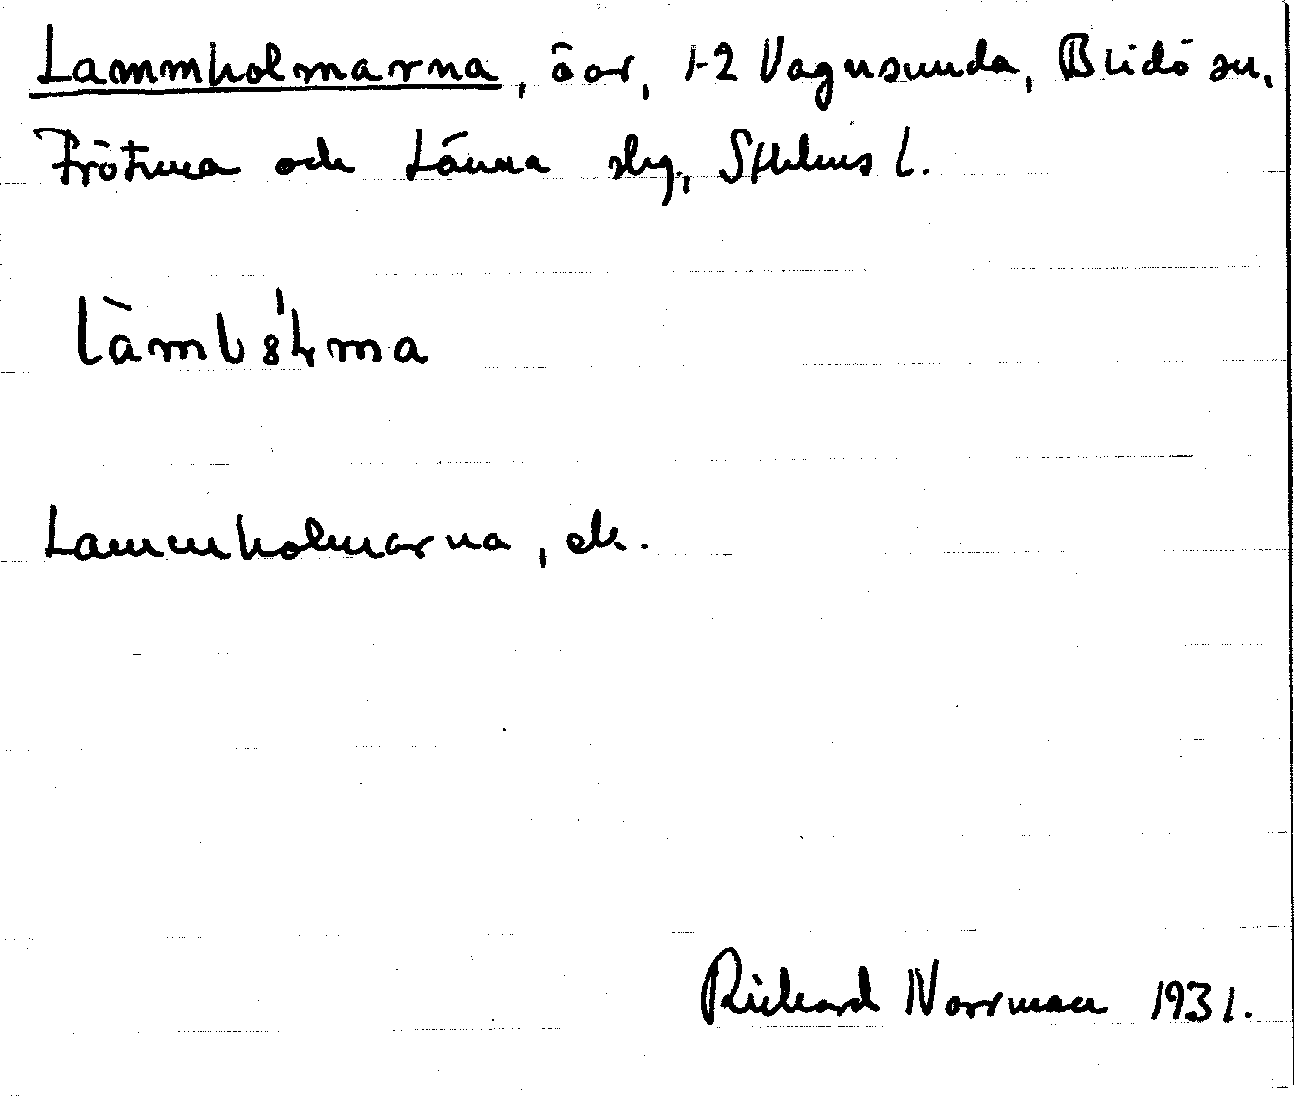 Lammholmarna, öar, 1-2 Vagnsunda, Blidö sn,
Frötuna och Länna slg, Sthlms l.
Lammholmarna, ek.
Richard Norrman 1931.